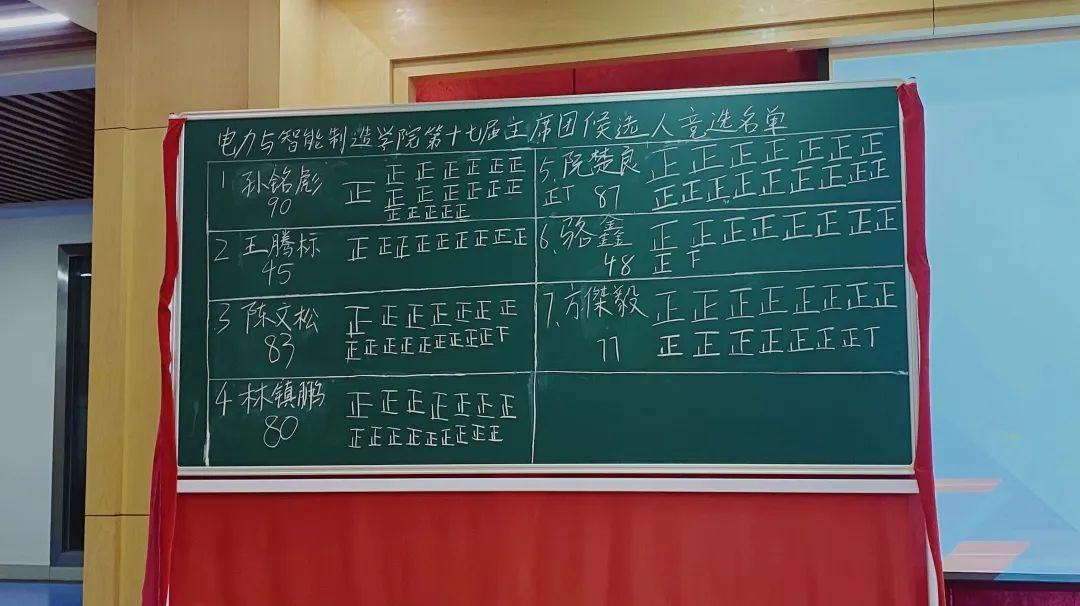 电力与智能制造学院第十七届主席团候选人竞选名单
1 孙铭彪 正正正正正正
90 正正正正正正正
正正正正正
2 王腾标 正正正正正正正正正
45
3 陈文松 正正正正正正正
83 正正正正正正正正正下
4 林镇鹏 正正正正正正正
80 正正正正正正正正正
5. 阮楚良 正正正正正正正
正T 87 正正正正正正正正正
6. 骆鑫 正正正正正正正正
48 正下
7. 方傑毅 正正正正正正正正
77 正正正正正正正T